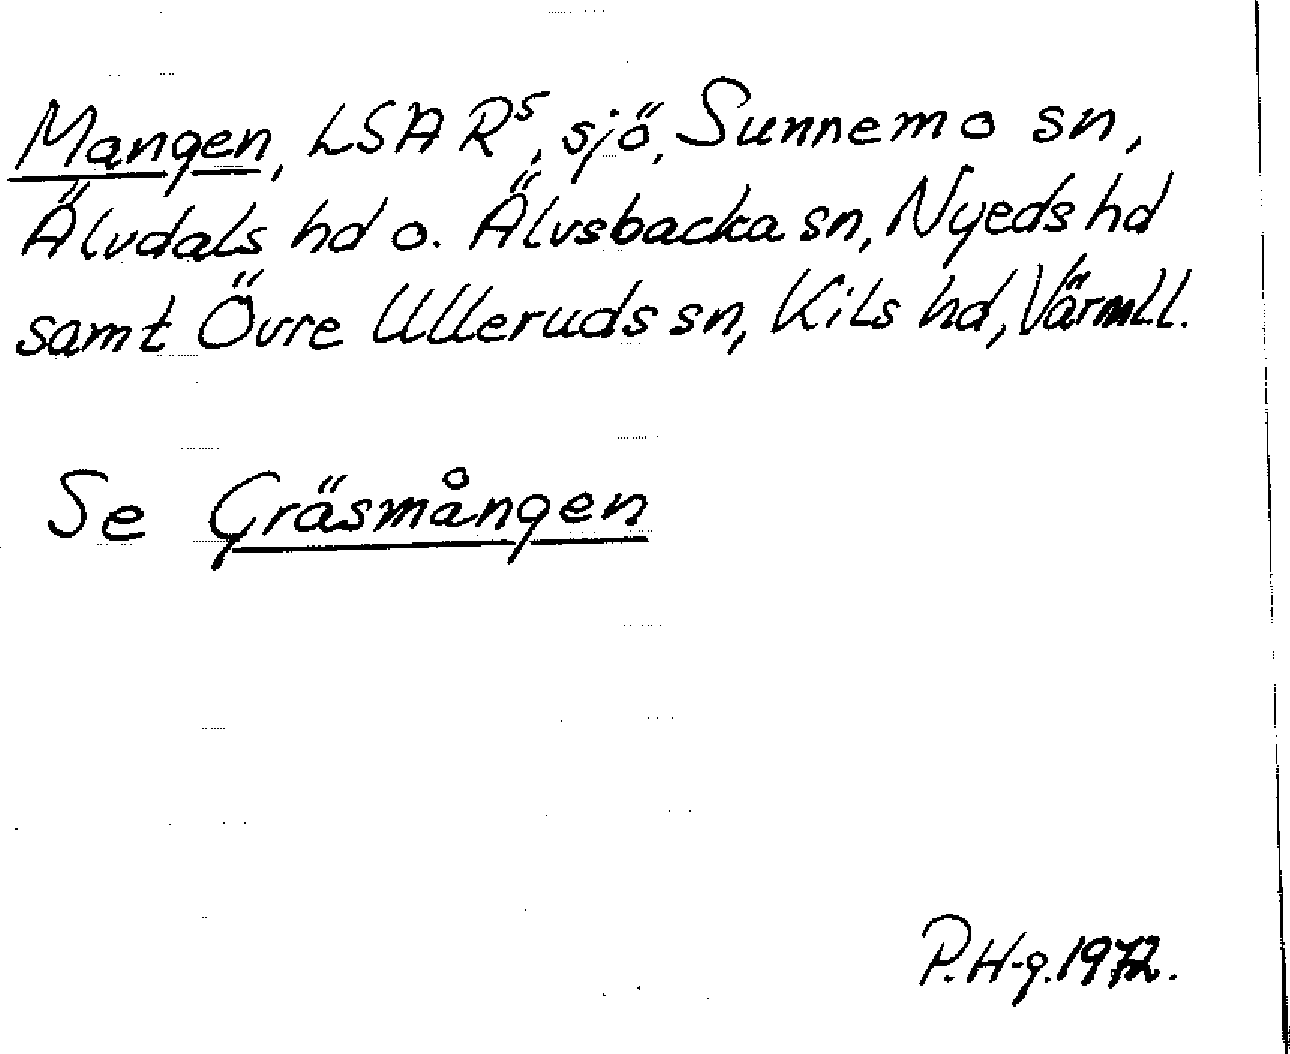 Mangen, LSA R⁵, sjö, Sunnemo sn,
Älvdals hd o. Älvsbacka sn, Nyeds hd
samt Övre Ulleruds sn, Kils hd, Värmll.
Se Gräsmången
P. H-g. 1972.